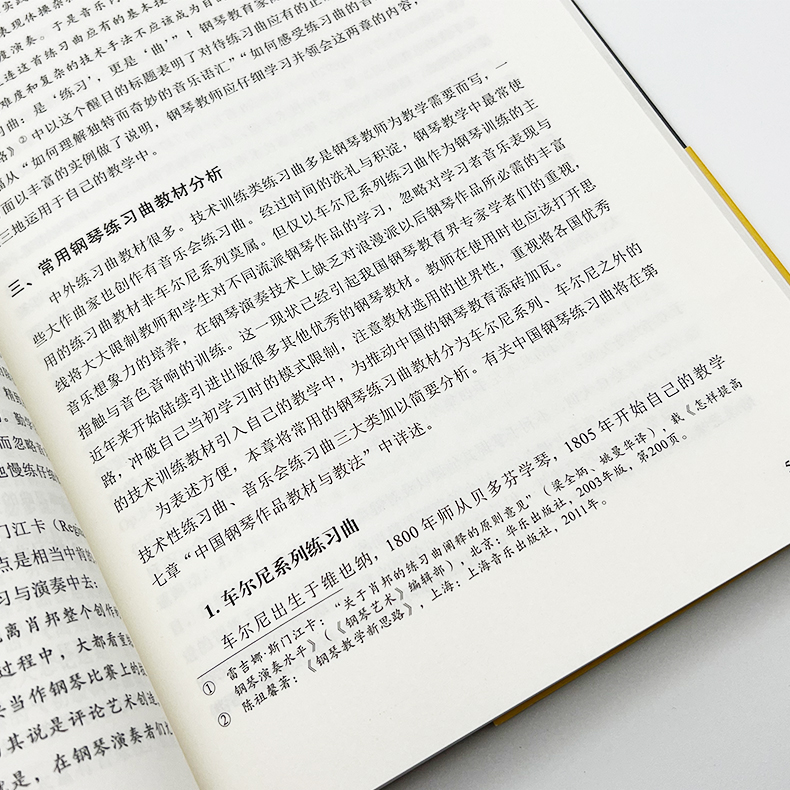 表现体操杂
度演奏。于是音乐
连这首练习曲应有的基本技
难度和复杂的技术手法不应该成为目
曲：是‘练习’，更是‘曲’”！钢琴教育家陈
络》②中以这个醒目的标题表明了对待练习曲应有的正
篇从“如何理解独特而奇妙的音乐语汇”“如何感受练习曲的音
而以丰富的实例做了说明，钢琴教师应仔细学习并领会这两章的内容，
三地运用于自己的教学中。
三、常用钢琴练习曲教材分析
中外练习曲教材很多。技术训练类练习曲多是钢琴教师为教学需要而写，一
些大作曲家也创作有音乐会练习曲。经过时间的洗礼与积淀，钢琴教学中最常使
用的练习曲教材非车尔尼系列莫属。但仅以车尔尼系列练习曲作为钢琴训练的主
线将大大限制教师和学生对不同流派钢琴作品的学习，忽略对学习者音乐表现与
音乐想象力的培养，在钢琴演奏技术上缺乏对浪漫派以后钢琴作品所必需的丰富
指触与音色音响的训练。这一现状已经引起我国钢琴教育界专家学者们的重视，
近年来开始陆续引进出版很多其他优秀的钢琴教材。教师在使用时也应该打开思
路，冲破自己当初学习时的模式限制，注意教材选用的世界性，重视将各国优秀
的技术训练教材引入自己的教学中，为推动中国的钢琴教育添砖加瓦。
为表述方便，本章将常用的钢琴练习曲教材分为车尔尼系列、车尔尼之外的
技术性练习曲、音乐会练习曲三大类加以简要分析。有关中国钢琴练习曲将在第
七章“中国钢琴作品教材与教法”中详述。
1. 车尔尼系列练习曲
车尔尼出生于维也纳，1800年师从贝多芬学琴，1805年开始自己的教学
① 雷吉娜·斯门江卡：“关于肖邦的练习曲阐释的原则意见”（梁全炳、姚曼华译），载《怎样提高
钢琴演奏水平》（《钢琴艺术》编辑部），北京：华乐出版社，2003年版，第200页。
② 陈祖馨著：《钢琴教学新思路》，上海：上海音乐出版社，2011年。
5
而忽略
也慢练仔细
门江卡（Regi
点是相当中肯的
习与演奏中去：
离肖邦整个创作
过程中，大都看重
当作钢琴比赛上的
其说是评论艺术创造
就是，在钢琴演奏者们